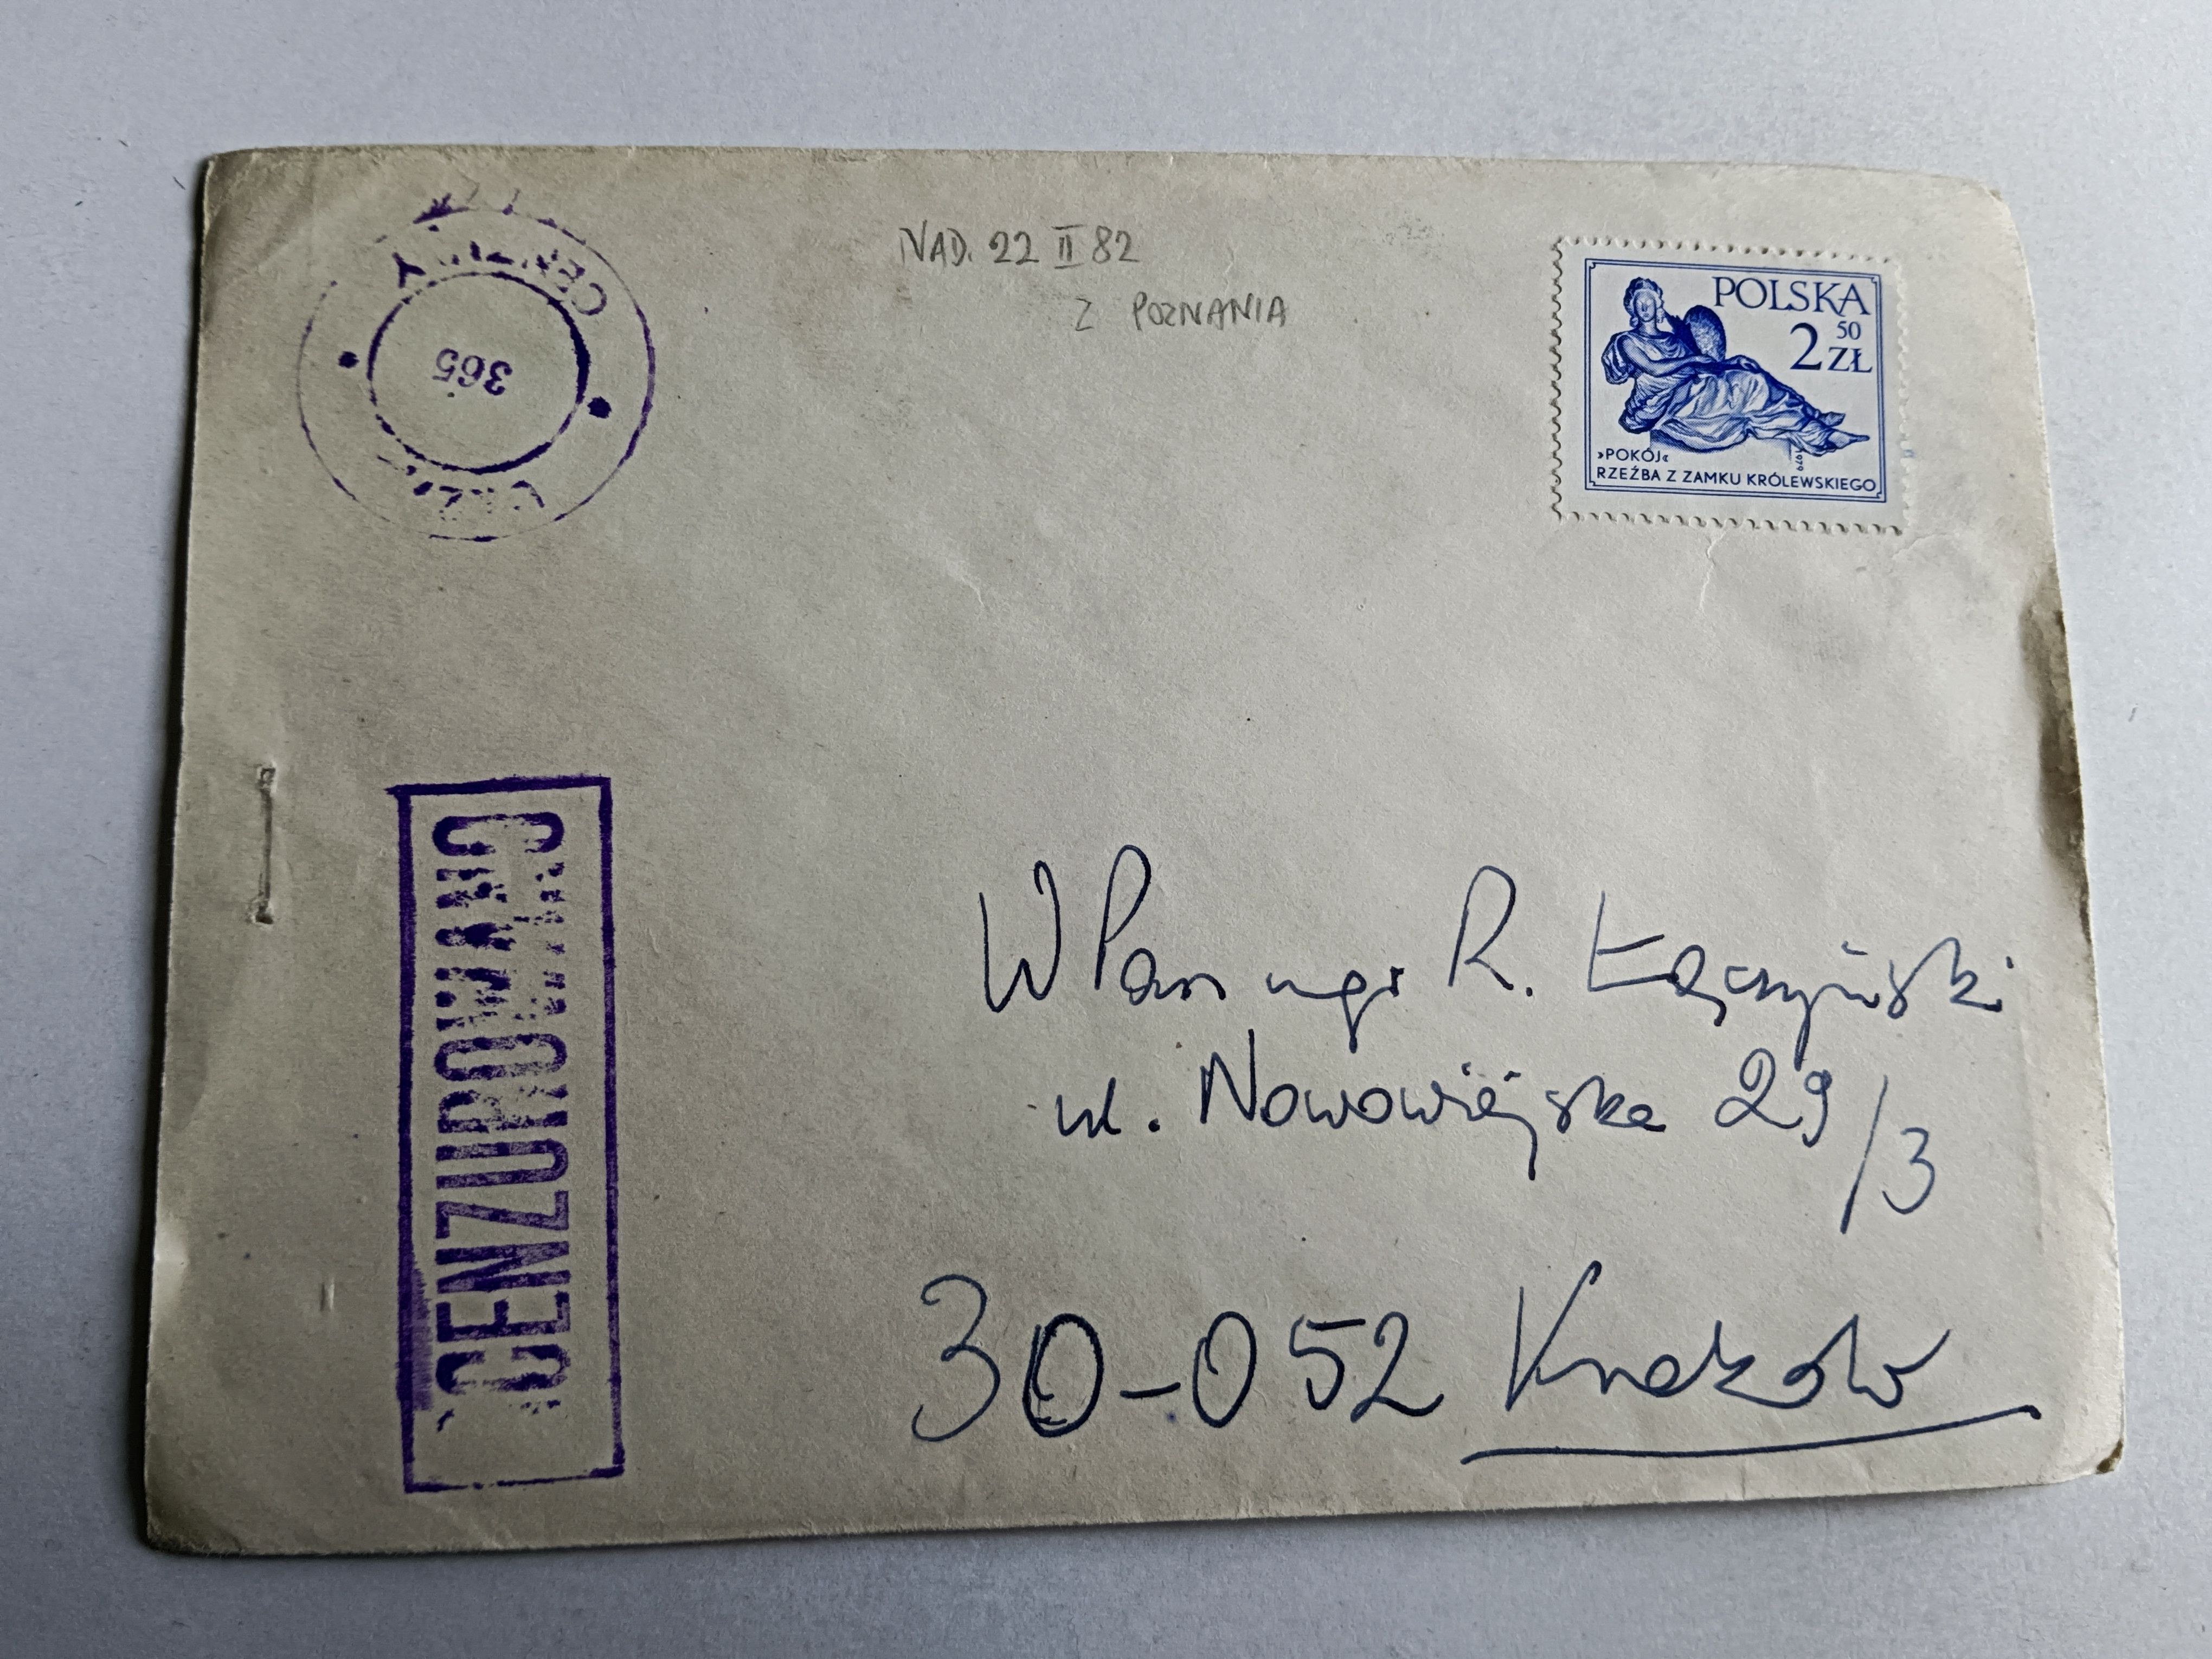 NAD. 22 II 82
Z POZNANIA
CENZURY
365
POLSKA
2 50 ZŁ
»POKÓJ«
1979
RZEŹBA Z ZAMKU KRÓLEWSKIEGO
OCENZUROWANO
WPan mgr R. Łączyński
ul. Nowowiejska 29/3
30-052 Kraków